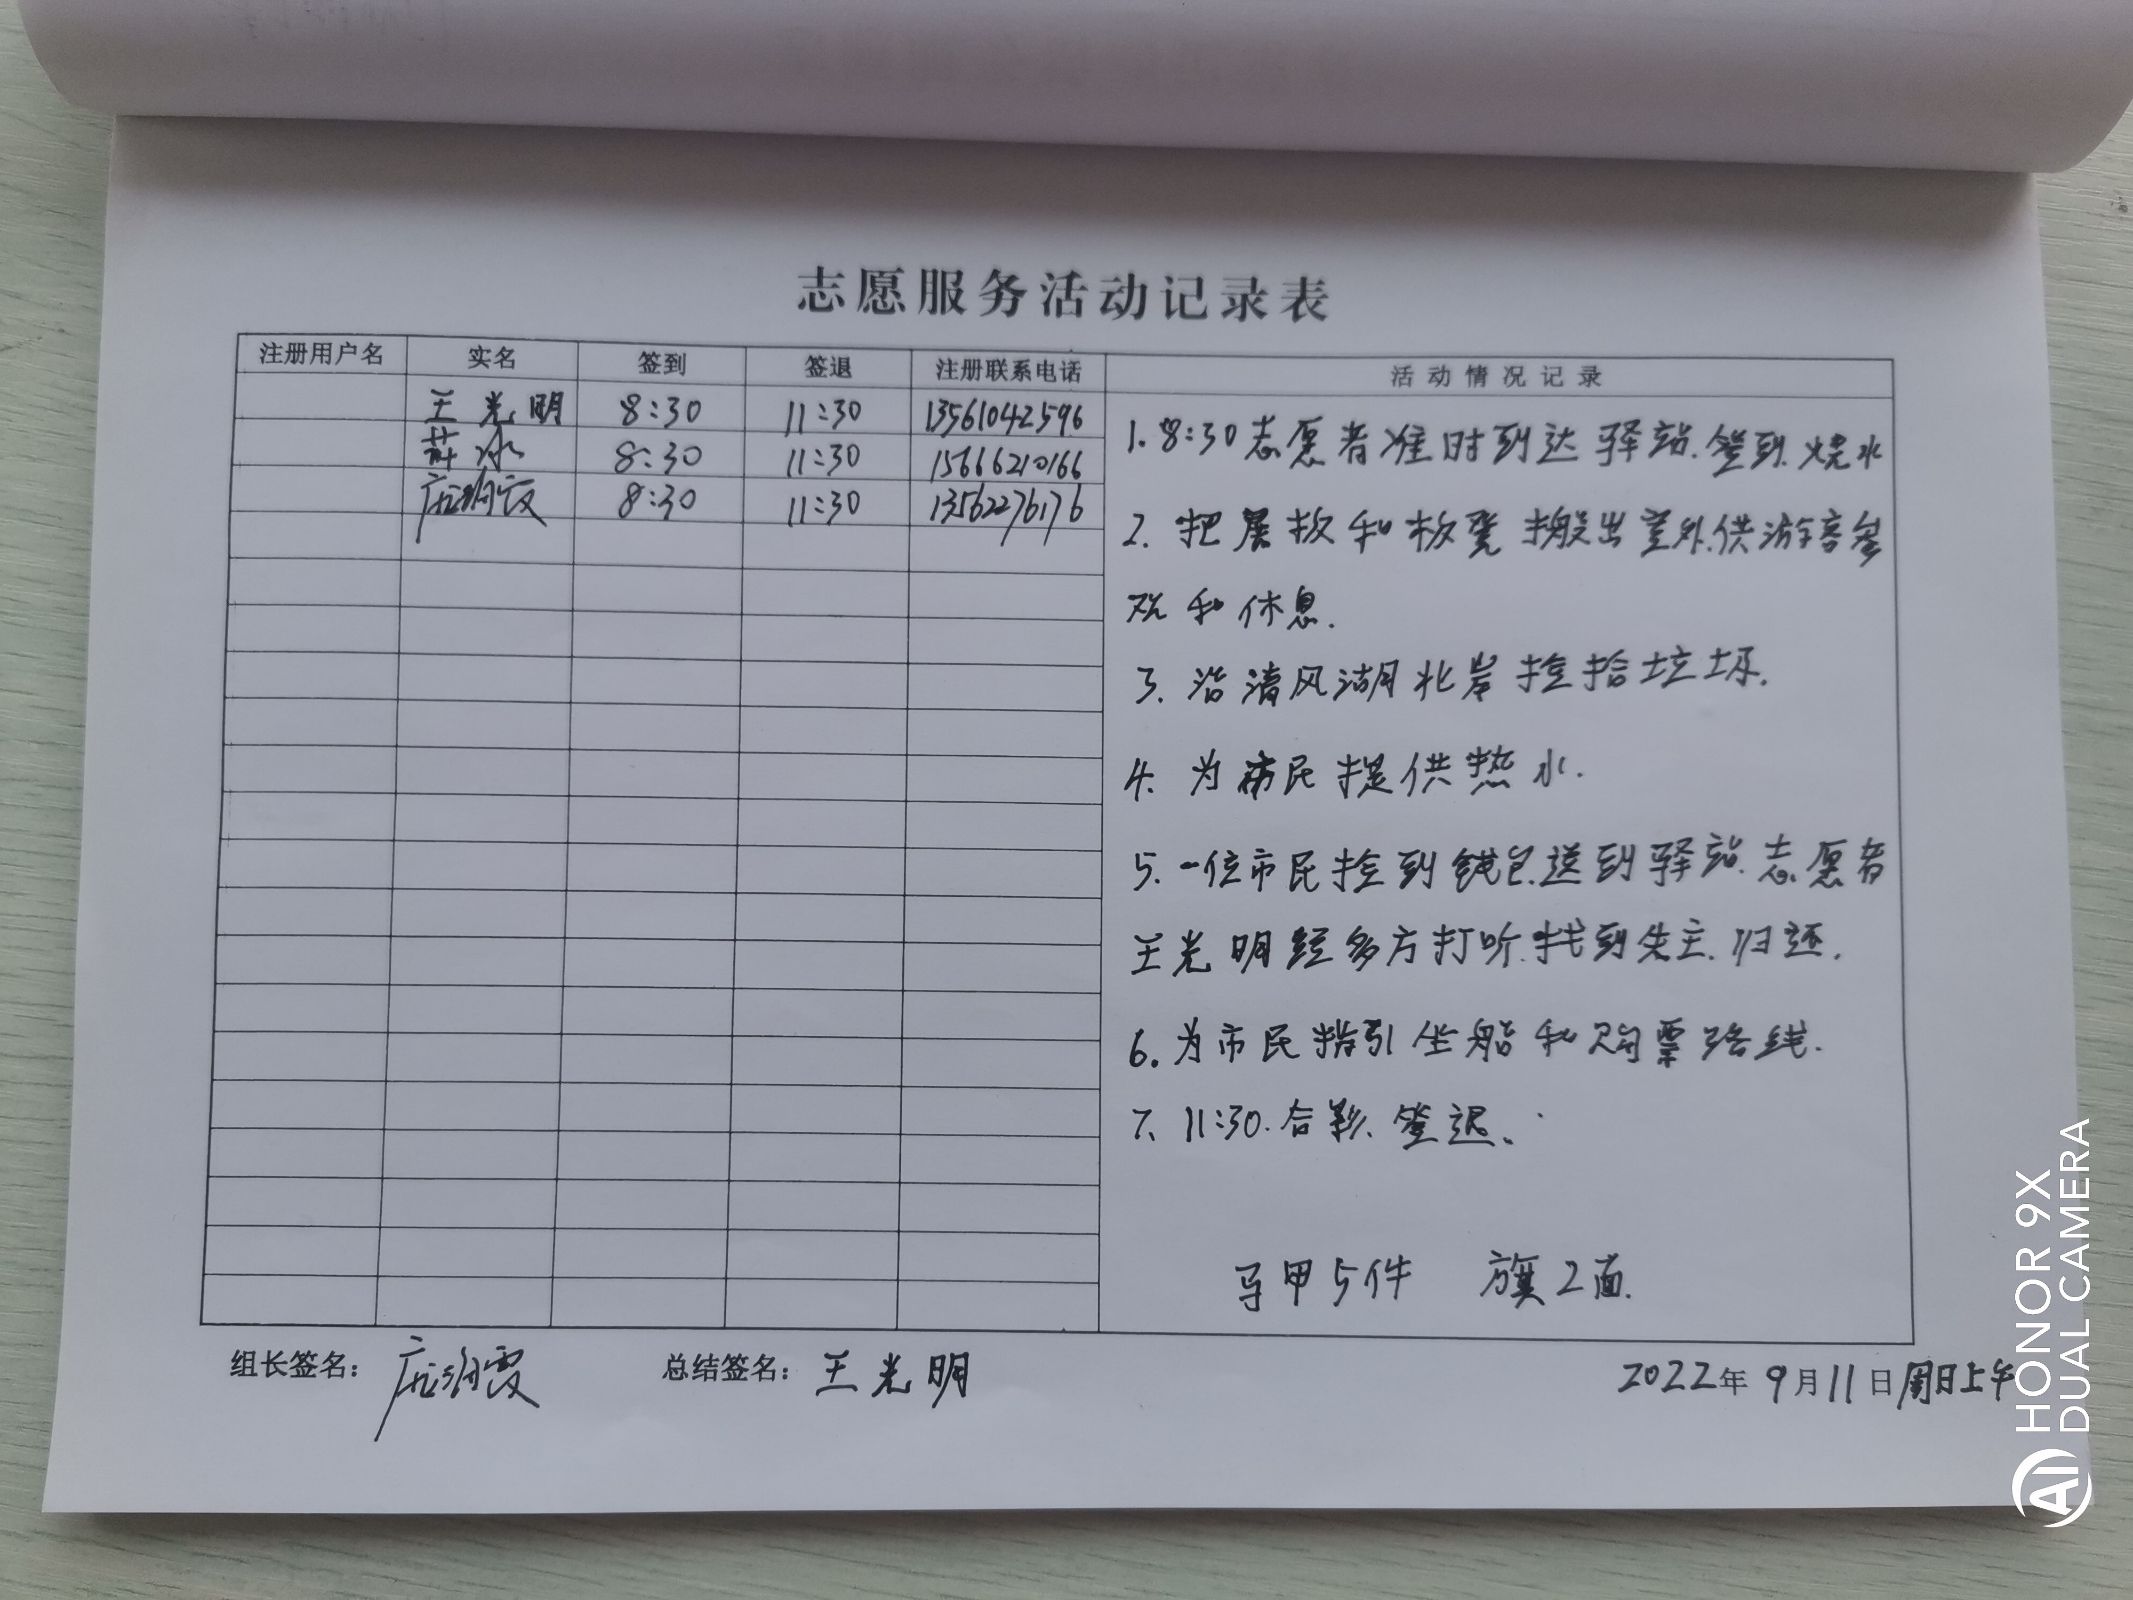 志愿服务活动记录表
注册用户名 实名 签到 签退 注册联系电话 活动情况记录
王光明 8:30 11:30 13561042596
冰 8:30 11:30 15666210166
8:30 11:30 13562276176
1. 8:30志愿者准时到达驿站.签到.烧水
2. 把展板和板凳搬出室外.供游客参
观和休息.
3. 沿清风湖北岸捡拾垃圾.
4. 为市民提供热水.
5. 一位市民捡到钱包.送到驿站.志愿者
王光明经多方打听.找到失主.归还.
6. 为市民指引坐船和购票路线.
7. 11:30.合影、签退、
马甲5件 旗2面.
组长签名： 总结签名：王光明 2022年9月11日周日上午
HONOR 9X
AI DUAL CAMERA